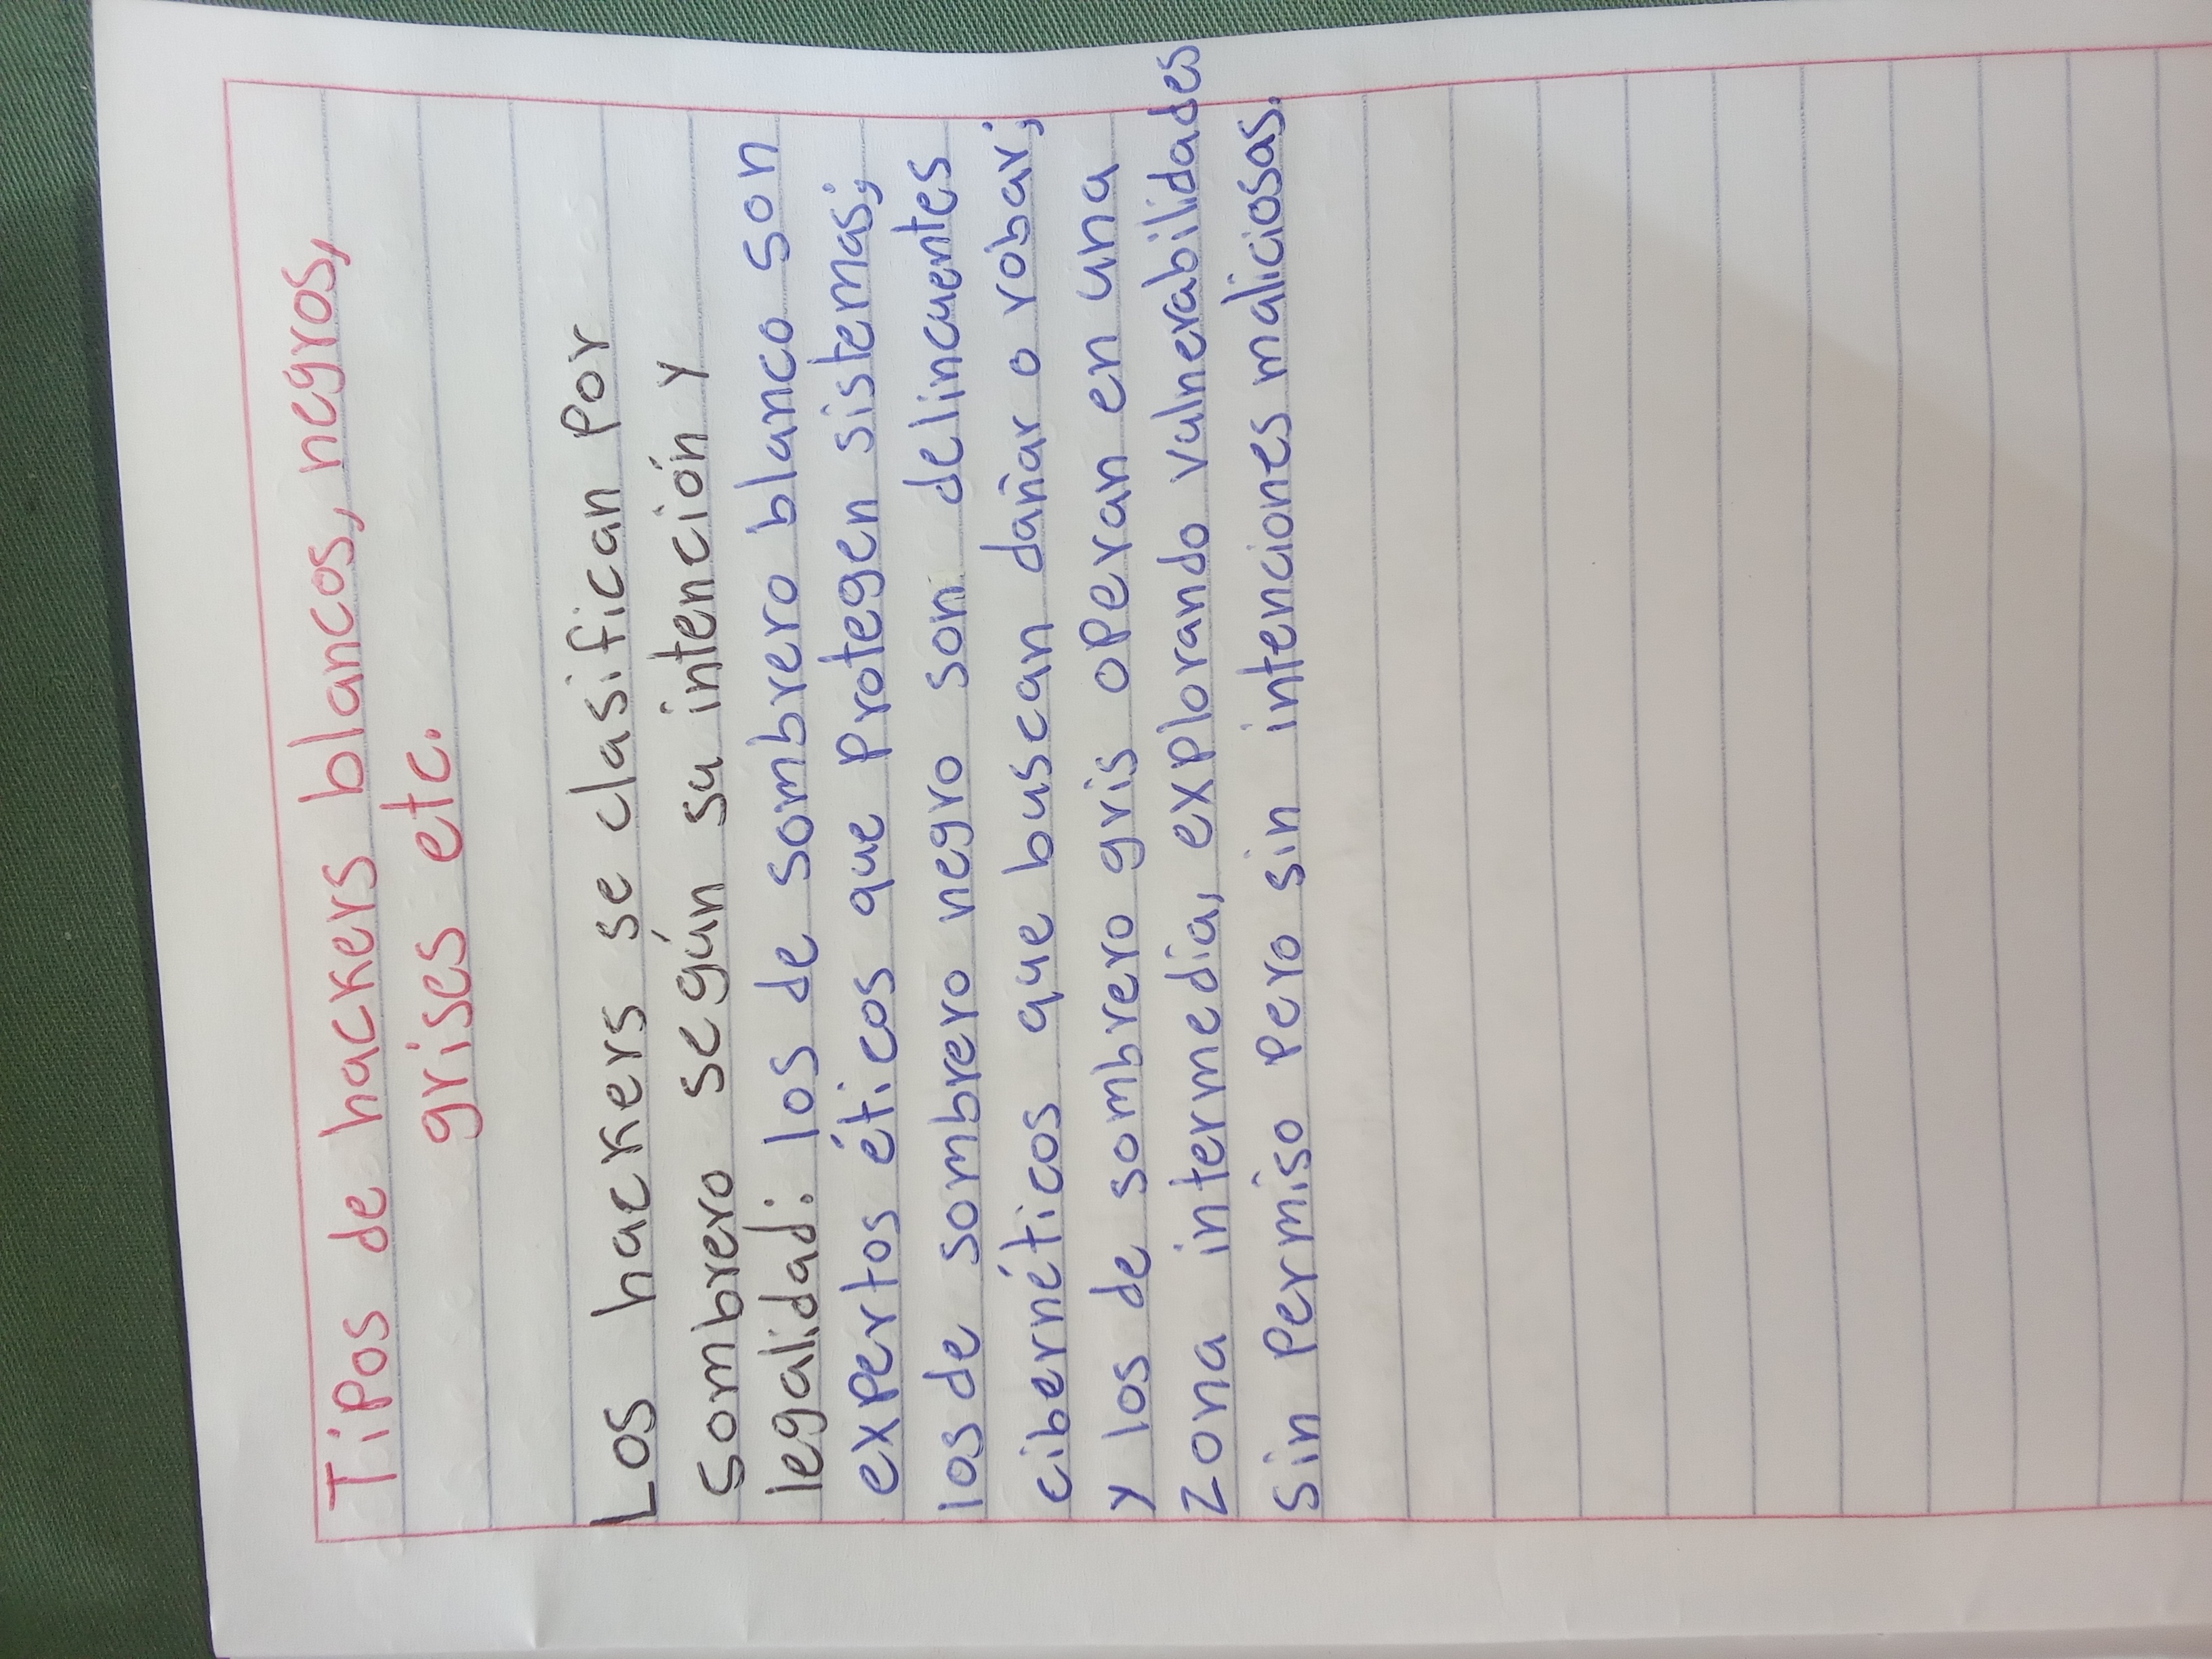 Tipos de hackers blancos, negros,
grises etc.
Los hackers se clasifican por
sombrero según su intención y
legalidad: los de sombrero blanco son
expertos éticos que protegen sistemas;
los de sombrero negro son delincuentes
cibernéticos que buscan dañar o robar;
y los de sombrero gris operan en una
zona intermedia, explorando vulnerabilidades
sin permiso pero sin intenciones maliciosas.